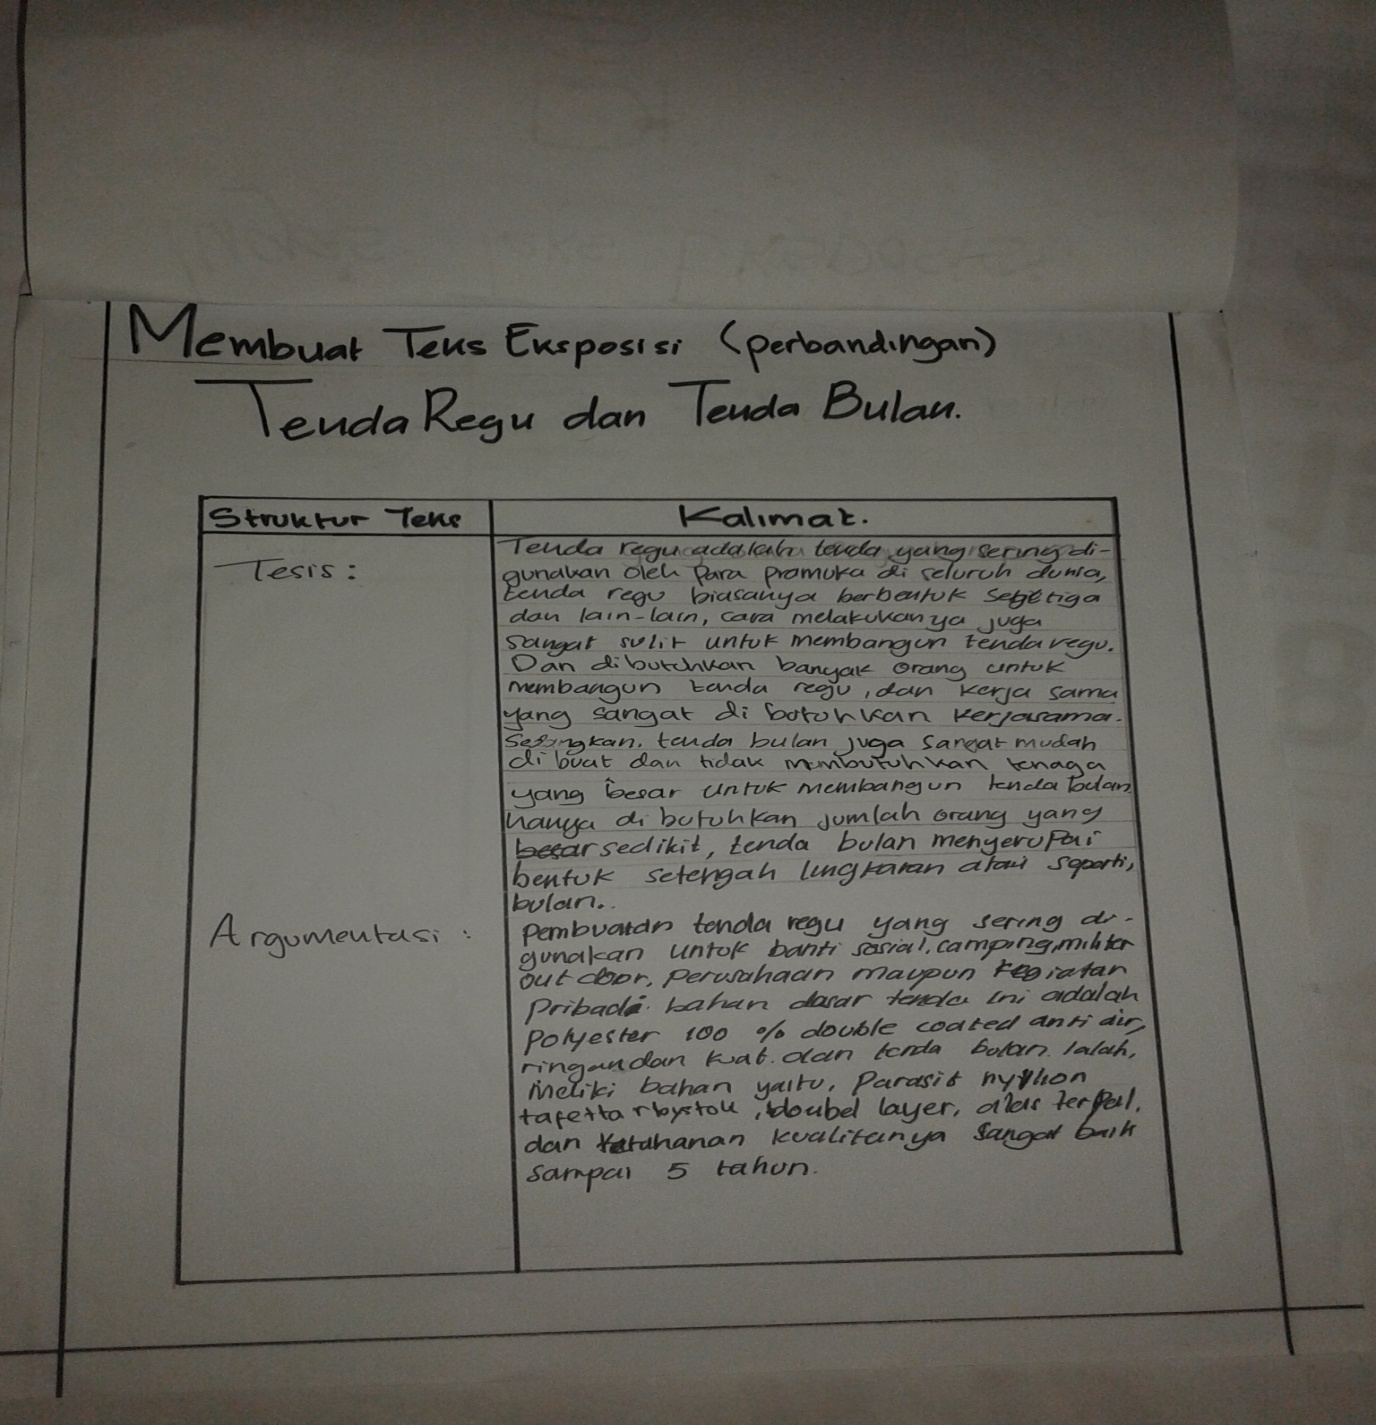 Membuat Teks Eksposisi (perbandingan)
Tenda Regu dan Tenda Bulan.
Struktur Teks
Kalimat.
Tesis :
Tenda regu adalah tenda yang sering di-
gunakan oleh para pramuka di seluruh dunia,
tenda regu biasanya berbentuk segitiga
dan lain-lain, cara melakukanya juga
sangat sulit untuk membangun tenda regu.
Dan dibutuhkan banyak orang untuk
membangun tenda regu, dan kerja sama
yang sangat di butuhkan kerjasama.
Sedangkan, tenda bulan juga sangat mudah
di buat dan tidak membutuhkan tenaga
yang besar untuk membangun tenda bulan
hanya di butuhkan jumlah orang yang
besar sedikit, tenda bulan menyerupai
bentuk setengah lingkaran atau seperti,
bulan..
Argumentasi :
pembuatan tenda regu yang sering di-
gunakan untuk banti sosial, camping, militer
out door, perusahaan maupun kegiatan
pribadi. bahan dasar tenda ini adalah
polyester 100 % double coated anti air,
ringan dan kuat. dan tenda bulan. Ialah,
meliki bahan yaitu, Parasit
tafetta, doubel layer, alas terpal,
dan ketahanan kualitanya sangat baik
sampai 5 tahun.